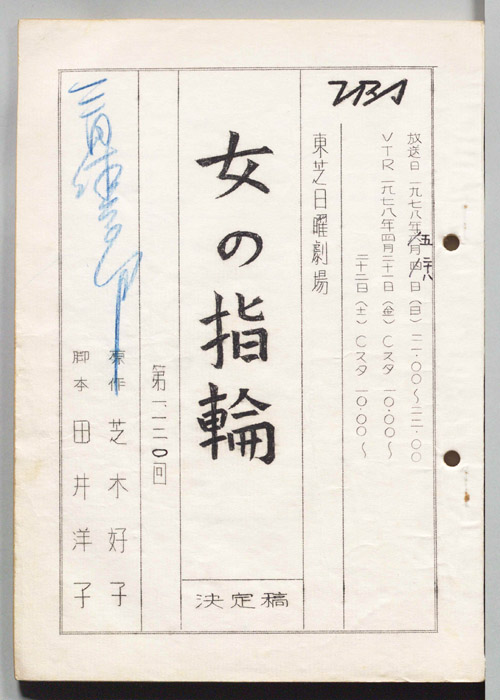 TBS
放送日 一九七八年五月二十八日（日）二一.〇〇〜二二.〇〇
VTR 一九七八年四月二十一日（金）Cスタ 一〇.〇〇〜
二十二日（土）Cスタ 一〇.〇〇〜
東芝日曜劇場
女の指輪
決定稿
第一一二〇回
原作 芝木好子
脚本 田井洋子